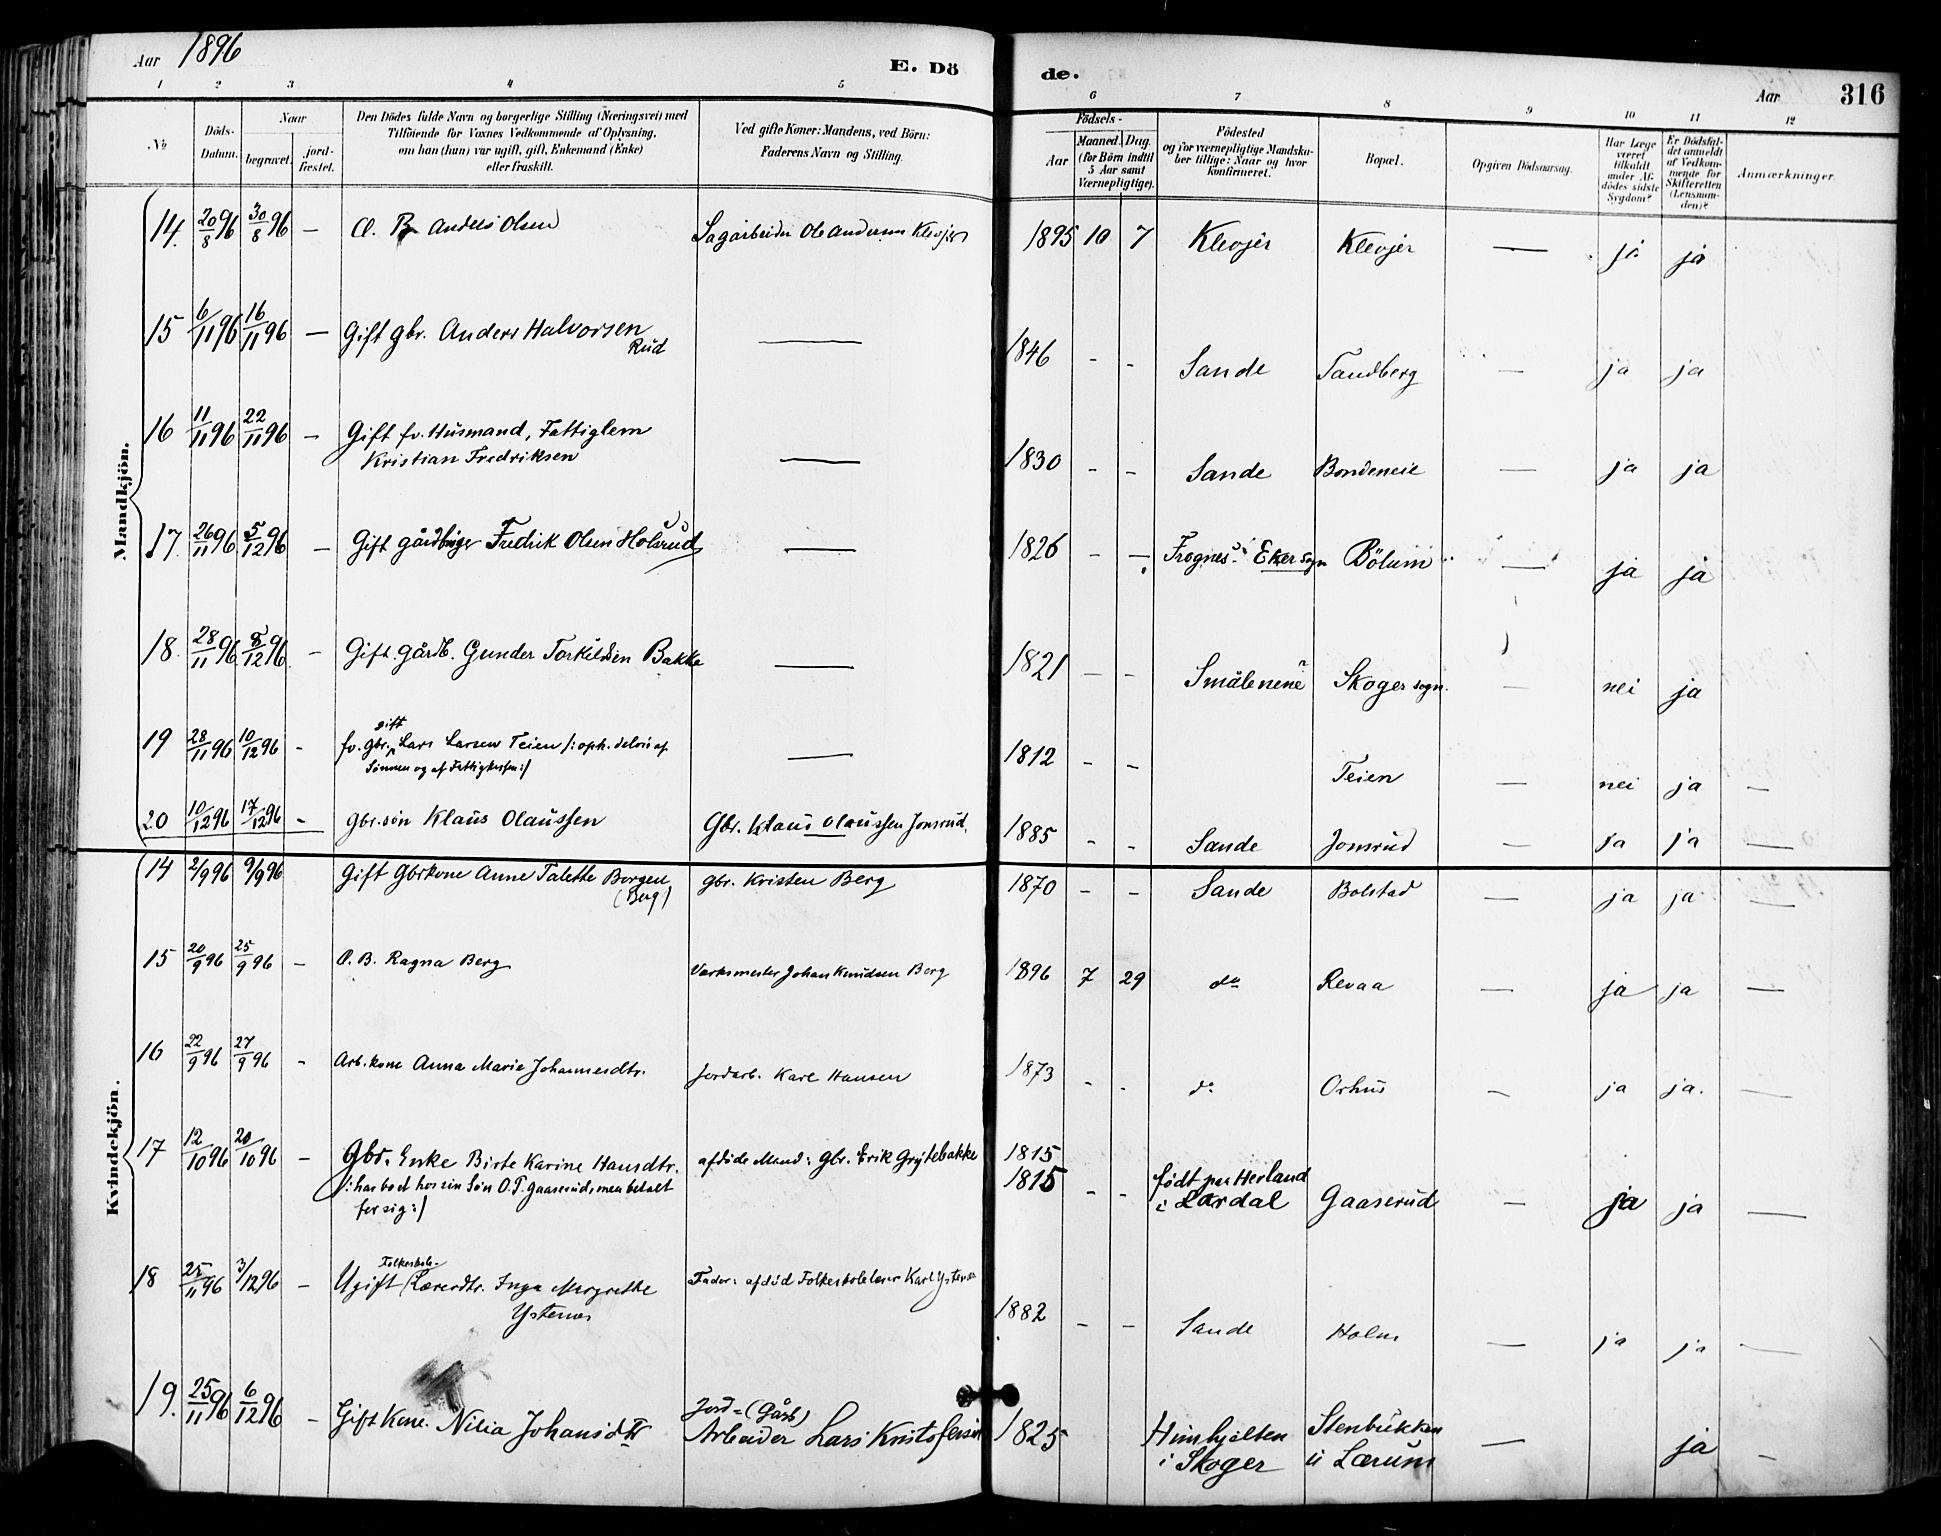 Aar 1896
E. Dö
de.
Aar
316
1 2 3 4 5 6 7 8 9 10 11 12
№
Döds-
Datum.
Naar
begravet.
jord-
fæstet.
Den Dödes fulde Navn og borgerlige Stilling (Næringsvei) med
Tilföiende for Voxnes Vedkommende af Oplysning,
om han (hun) var ugift, gift, Enkemand (Enke)
eller fraskilt.
Ved gifte Koner: Mandens, ved Börn:
Faderens Navn og Stilling.
Födsels-
Aar
Maaned. Dag.
(for Börn indtil
5 Aar samt
Værnepligtige).
Födested
og for værnepligtige Mandska-
ber tillige: Naar og hvor
konfirmeret.
Bopæl.
Opgiven Dödsaarsag.
Har Læge
været
tilkaldt
under Af-
dödes sidste
Sygdom?
Er Dödsfal-
det anmeldt
af Vedkom-
mende for
Skifteretten
(Lensman-
den)?
Anmærkninger.
Mandkjön.
14. 20/8 96 30/8 96 — Anders Olsen Sagarbeider Ole Andersen Klevjer 1895 10 7 Klevjer Klevjer — ja ja
15 6/11 96 16/11 96 — Gift gbr. Anders Halvorsen
Rud — 1846 - - Sande Tandberg — ja ja
16 11/11 96 22/11 96 — Gift fv. Husmand, Fattiglem
Kristian Fredriksen — 1830 - - Sande Bondeneie — ja ja
17. 26/11 96 5/12 96 — Gift gårdbruger Fredrik Olsen Holsrud — 1826 - — Frognes i Eker sogn Bölum — ja ja
18. 28/11 96 8/12 96 — Gift. gårdb. Gunder Torkildsen Bakke — 1821 - - Smålenene Skoger sogn. — nei ja
19 28/11 96 10/12 96 - gift
fv. gbr. Lars Larsen Teien /: oph. delvis af
Sönnen og af Fattigkassen:/ — 1812 - - Teien — nei ja —
20 10/12 96 17/12 96 - gbr.sön Klaus Olaussen Gbr. Klaus Olaussen Jonsrud. 1885 - - Sande Jonsrud — ja ja —
Kvindekjön.
14 2/9 96 9/9 96 Gift Gbrkone Anne Talette Borgen
(Berg) gbr. Kristen Berg 1870 - - Sande Bolstad — ja ja —
15 20/9 96 25/9 96 - Ragna Berg Værksmester Johan Knudsen Berg 1896 7 29 do Revaa — ja ja —
16 22/9 96 27/9 96 - Arb. kone Anna Marie Johannesdtr. Jordarb. Karl Hansen 1873 - - do Orhus — ja ja. —
17 12/10 96 20/10 96 - Gbr. Enke Birte Karine Hansdtr.
/: har boet hos sin Sön O.T. Gaaserud, men betalt
for sig :/ afdöde Mand: Gbr. Erik Grytebakke 1815
1815 - - født paa Herland
i Lardal Gaaserud — ja ja —
18 25/11 96 3/12 96 - Folkeskole-
Ugift Lærerdtr. Inga Margrethe
Ystenes Fader: afdöd Folkeskolelærer Karl Ystenes 1882 - - Sande Holm — ja ja —
19. 25/11 96 6/12 96 - Gift Kone. Nilia Johansdtr Jord- (Gårdb)
Arbeider Lars Kristofersen 1825 i Skoger Stenbrikken
u Lærum — ja —